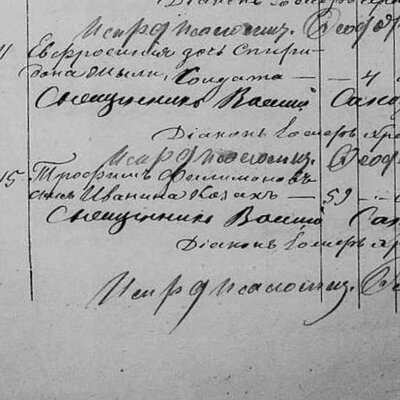 Діаконъ
Испр д псаломщ. Ѳеоф
Евфросинія дочь Спири-
дона Солдата — — 4
Священникъ Василій Сан
Діаконъ
Испр д псаломщ. Ѳеоф
15 Трофимъ Филимоновъ
сынъ Иванина Козакъ — 59 —
Священникъ Василій Сан
Діаконъ
Испр д псаломщ.